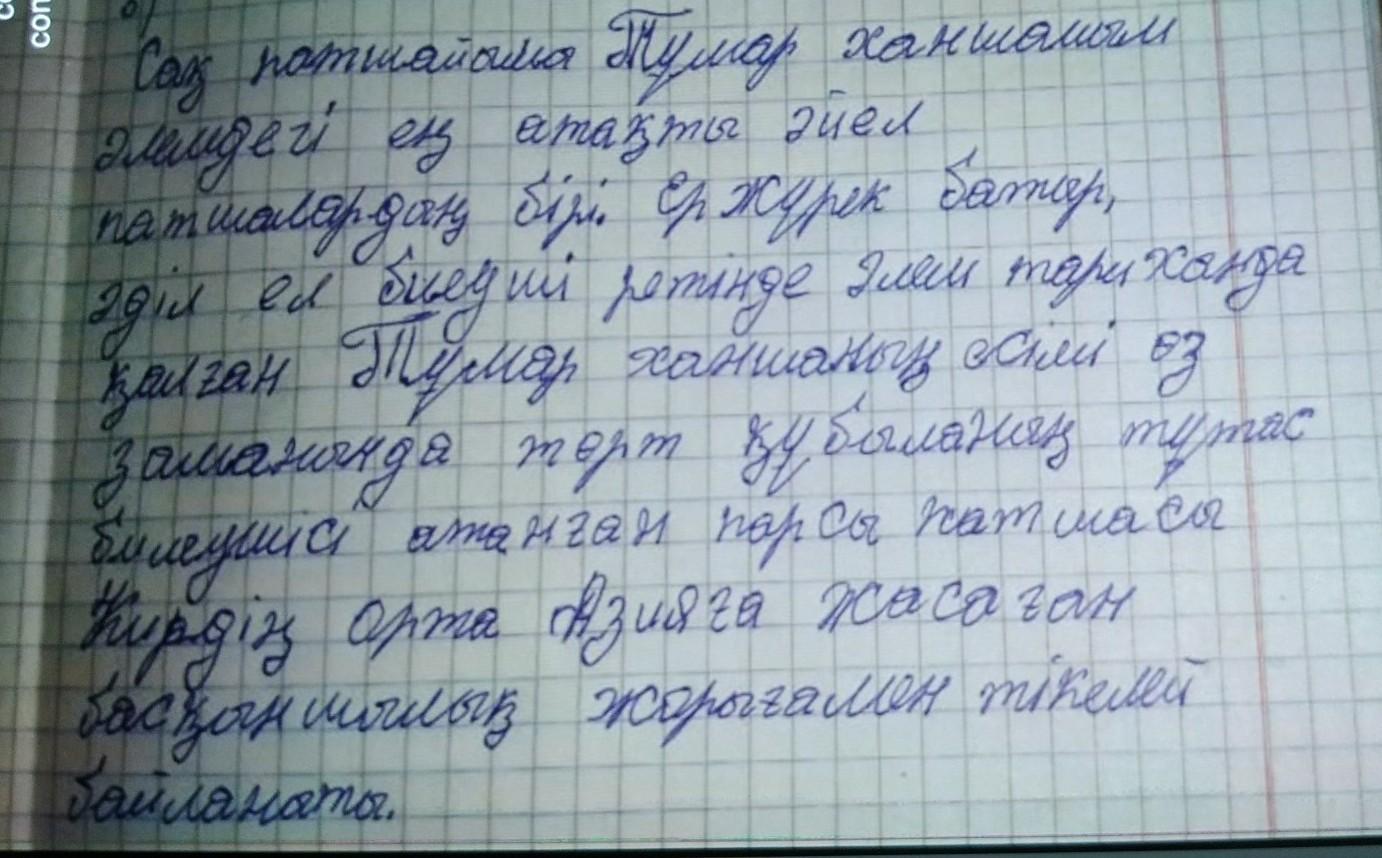 Сақ патшайымы Тұмар ханшайым
әлемдегі ең атақты әйел
патшалардың бірі. Ержүрек батыр,
әділ ел билеуші ретінде әлем тарихында
қалған Тұмар ханшаның есімі өз
заманында төрт құбыланың тұтас
билеушісі атанған парсы патшасы
Кирдің Орта Азияға жасаған
басқыншылық жорығымен тікелей
байланысты.